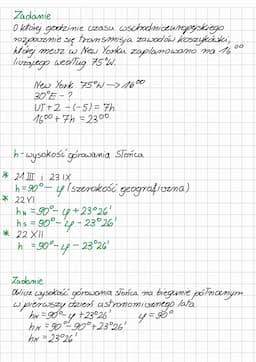 Zadanie
O której godzinie czasu wschodnioeuropejskiego
rozpocznie się transmisja zawodów koszykówki,
której mecz w New Yorku zaplanowano na 16⁰⁰
liczącego według 75°W.
New York 75°W → 16⁰⁰
30°E - ?
UT + 2 - (-5) = 7h
16⁰⁰ + 7h = 23⁰⁰
h - wysokość górowania Słońca
* 21 III i 23 IX
h = 90° - φ (szerokość geograficzna)
* 22 VI
hN = 90° - φ + 23°26'
hS = 90° - φ - 23°26'
* 22 XII
h = 90° - φ - 23°26'
Zadanie
Oblicz wysokość górowania Słońca na biegunie północnym
w pierwszy dzień astronomicznego lata.
hN = 90° - φ + 23°26' φ = 90°
hN = 90° - 90° + 23°26'
hN = 23°26'